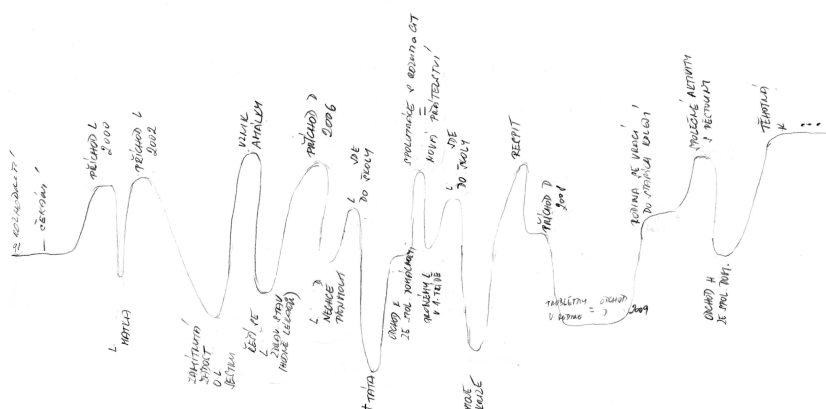 – ROZHODNUTÍ
– ČEKÁNÍ
PŘÍCHOD L
2000
L MATKA
PŘÍCHOD L
2002
ZAMÍTNUTÁ
ŽÁDOST
O L
SESTRU
VZNIK
AMÁLKY
ŘEŠÍ SE
L
ZDRAV. STAV
(HODNĚ LÉKAŘŮ)
PŘÍCHOD D
2006
L D
NECHCE
PŘIJMOUT
L JDE
DO ŠKOLY
+ TÁTA
ODCHOD K
ZE MOL. DOMÁCNOSTI
SPOLUPRÁCE S ROZUM A CIT
=
NOVÁ PŘÁTELSTVÍ
PROBLÉMY L
V 1. TŘÍDĚ
L JDE
DO ŠKOLY
RESPIT
PŘÍCHOD D
2008
PROBLÉMY
V RODINĚ
=
ODCHOD
D
2009
RODINA SE VRACÍ
DO STARÝCH KOLEJÍ
SPOLEČNÉ AKTIVITY
S PĚSTOUNY
ODCHOD H
ZE MOL. DOM.
TĚHOTNÁ
K
...